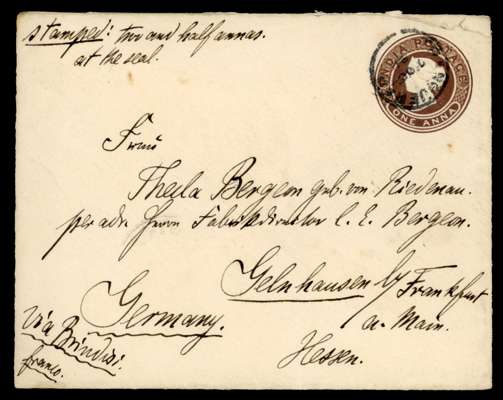 stamped: two and half annas.
at the seal.
INDIA POSTAGE
ONE ANNA
Frau
Thella Bergeon geb. von Riedenau.
per adr. Herrn Fabrikdirector C. E. Bergeon.
Gelnhausen b/ Frankfurt
a. Main.
Germany.
Hessen.
Via Brindisi:
franco.